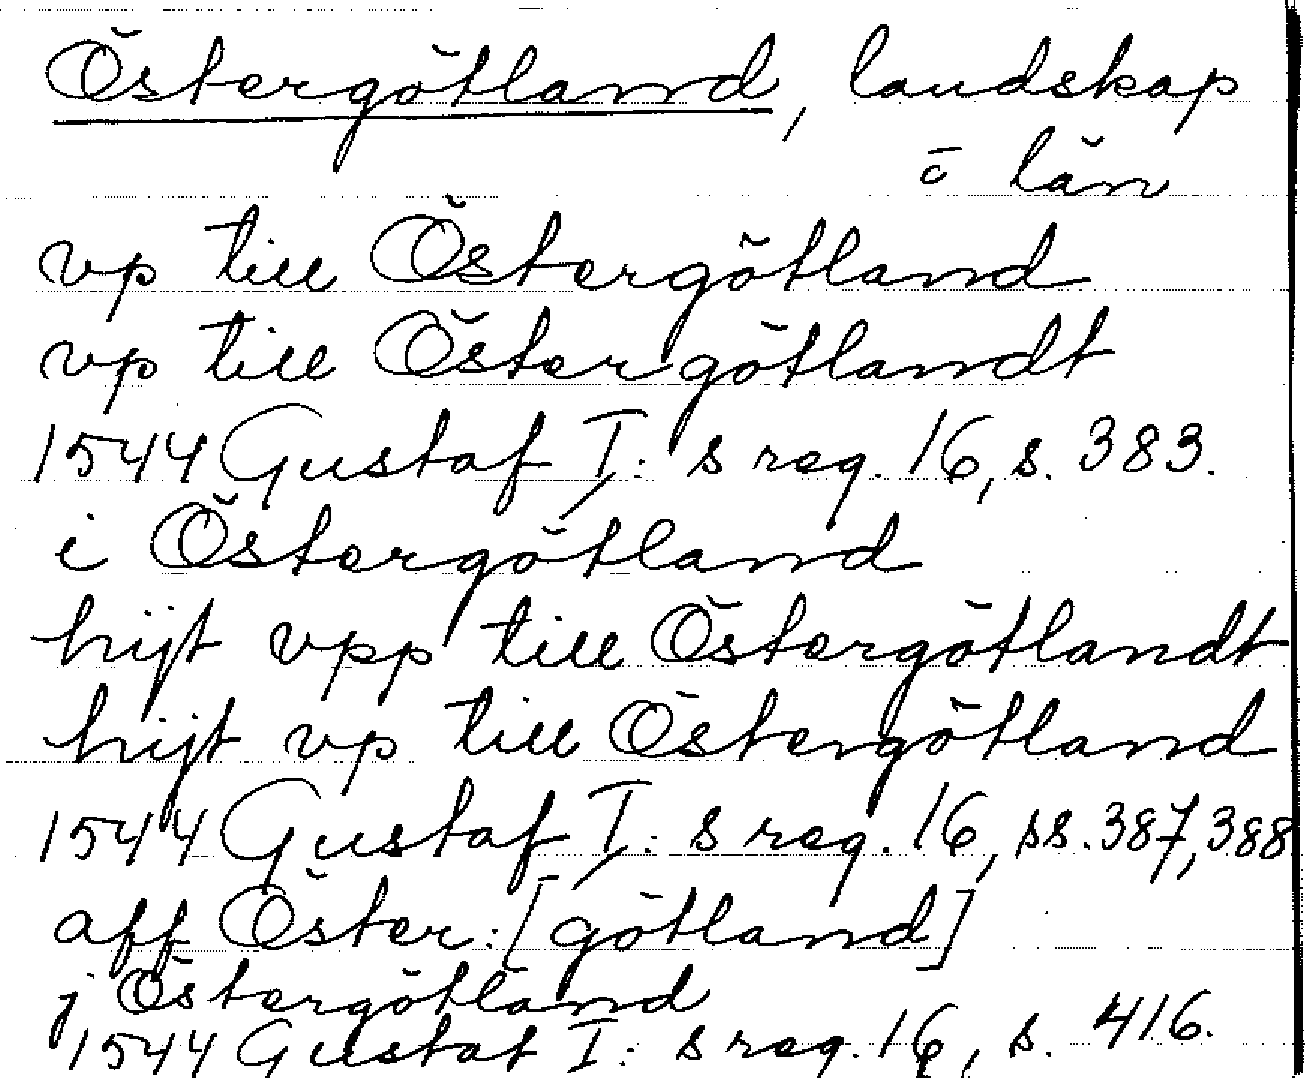 Östergötland, landskap
o län
vp till Östergötland
vp till Östergötlandt
1544 Gustaf I:s reg. 16, s. 383.
i Östergötland
hijt vpp till Östergötlandt
hijt vp till Östergötland
1544 Gustaf I:s reg. 16, ss. 387, 388
aff Öster:[götland]
j Östergötland
1544 Gustaf I:s reg. 16, s. 416.